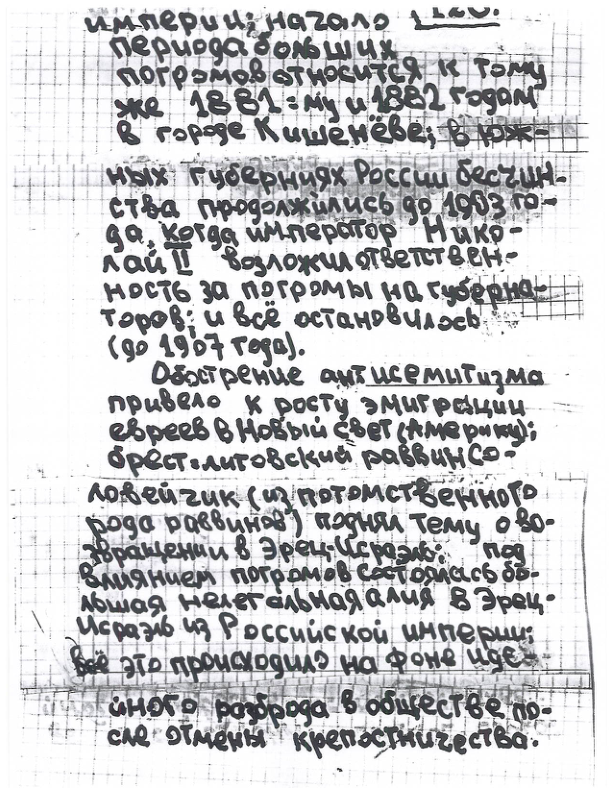 империи; начало 120.
периода больших
погромов относится к тому
же 1881=му и 1882 годам
в городе Кишенёве; в юж-
ных губерниях России бесчин-
ства продолжились до 1903 го-
да, когда император Нико-
лай II возложил ответствен-
ность за погромы на губерна-
торов; и всё остановилось
(до 1907 года).
Обострение антисемитизма
привело к росту эмиграции
евреев в Новый свет (Америку);
брест=литовский раввин Со-
ловейчик (из потомственного
рода раввинов) поднял тему о во-
звращении в Эрец-Исраэль; под
влиянием погромов состоялась бо-
льшая нелегальная алия в Эрец-
Исраэль из Российской империи;
всё это происходило на фоне иде-
йного разброда в обществе по-
сле отмены крепостничества.